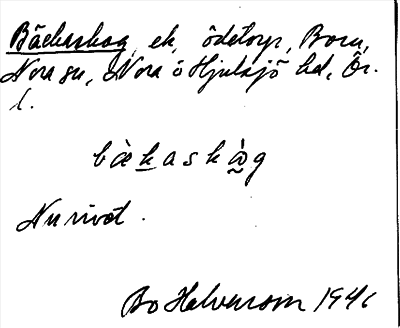 Bäckaskog, ek, ödetorp, Born,
Nora sn, Nora o Hjulsjö hd, Ör.
l.
bǟkaskå̀g
Nu rivet.
Bo Halvarson 1946